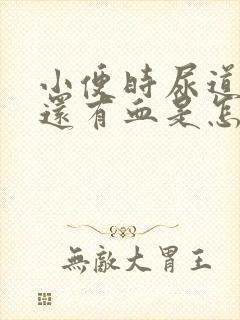 小便時尿道
還有血是怎
無敵大胃王